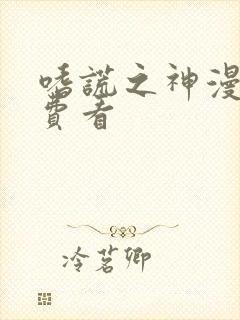 嗜謊之神漫
費看
冷茗卿